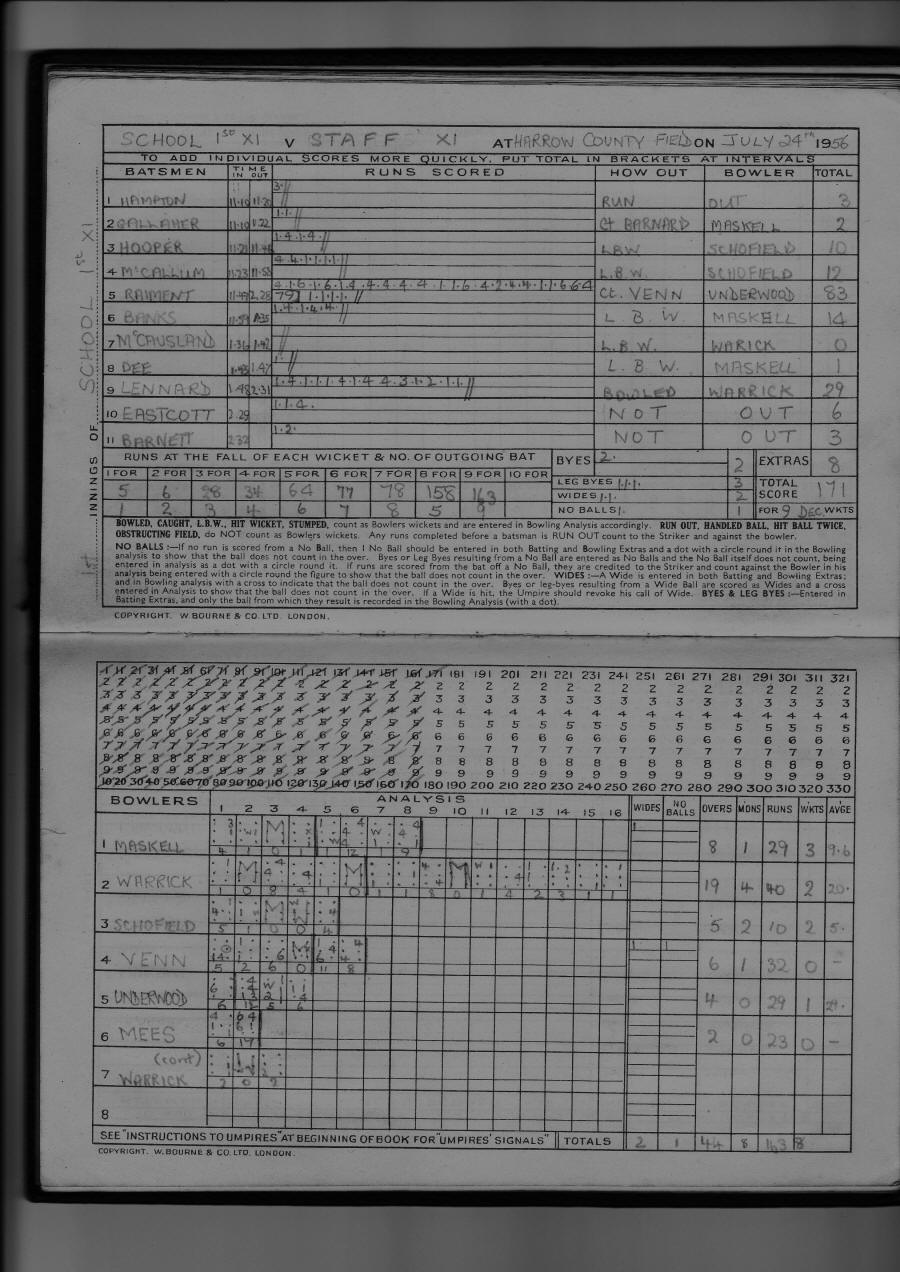 SCHOOL 1ST XI V STAFF XI AT HARROW COUNTY FIELD ON JULY 24TH 1956
TO ADD INDIVIDUAL SCORES MORE QUICKLY, PUT TOTAL IN BRACKETS AT INTERVALS
BATSMEN TIME IN OUT RUNS SCORED HOW OUT BOWLER TOTAL
1 HAMPTON 11-10 11-20 3. RUN OUT 3
2 GALLAHER 11-10 11.22 1.1. Ct BARNARD MASKELL 2
3 HOOPER 11-21 1.4.1.4. LBW SCHOFIELD 10
4 McCALLUM 11-23 4.4.1.1.1.1. L.B.W. SCHOFIELD 12
5 RAIMENT 2.28 4.1.6.1.4.4.4.4.1.1.6.4.2.4.4.1.1.6.6.4 79] 1.1.1.1. Ct. VENN UNDERWOOD 83
6 BANKS 11-59 1.4.1.4.4. L.B.W MASKELL 14
7 McCAUSLAND 1.36 1.42 L.B.W. WARICK 0
8 DEE 1.43 1.47 1. L.B.W. MASKELL 1
9 LENNARD 1.48 2.31 1.4.1.1.1.4.1.4.4.3.1.2.1.1. BOWLED WARRICK 29
10 EASTCOTT 2.29 1.1.4. NOT OUT 6
11 BARNETT 2.32 1.2. NOT OUT 3
INNINGS OF SCHOOL 1st XI
1st
RUNS AT THE FALL OF EACH WICKET & NO. OF OUTGOING BAT BYES 2. 2 EXTRAS 8
1 FOR 2 FOR 3 FOR 4 FOR 5 FOR 6 FOR 7 FOR 8 FOR 9 FOR 10 FOR LEG BYES 1.1.1. 3 TOTAL SCORE 171
5 6 28 34 64 77 78 158 163 WIDES 1.1. 2
1 2 3 4 6 7 8 5 9 NO BALLS 1. 1 FOR 9 DEC WKTS
BOWLED, CAUGHT, L.B.W., HIT WICKET, STUMPED, count as Bowlers wickets and are entered in Bowling Analysis accordingly. RUN OUT, HANDLED BALL, HIT BALL TWICE,
OBSTRUCTING FIELD, do NOT count as Bowlers wickets. Any runs completed before a batsman is RUN OUT count to the Striker and against the bowler.
NO BALLS :—If no run is scored from a No Ball, then 1 No Ball should be entered in both Batting and Bowling Extras and a dot with a circle round it in the Bowling
analysis to show that the ball does not count in the over. Byes or Leg Byes resulting from a No Ball are entered as No Balls and the No Ball itself does not count, being
entered in analysis as a dot with a circle round it. If runs are scored from the bat off a No Ball, they are credited to the Striker and count against the Bowler in his
analysis being entered with a circle round the figure to show that the ball does not count in the over. WIDES :—A Wide is entered in both Batting and Bowling Extras;
and in Bowling analysis with a cross to indicate that the ball does not count in the over. Byes or leg-byes resulting from a Wide Ball are scored as Wides and a cross
entered in Analysis to show that the ball does not count in the over. If a Wide is hit, the Umpire should revoke his call of Wide. BYES & LEG BYES :—Entered in
Batting Extras, and only the ball from which they result is recorded in the Bowling Analysis (with a dot).
COPYRIGHT. W. BOURNE & CO. LTD. LONDON.
1 11 21 31 41 51 61 71 81 91 101 111 121 131 141 151 161 171 181 191 201 211 221 231 241 251 261 271 281 291 301 311 321
2 2 2 2 2 2 2 2 2 2 2 2 2 2 2 2 2 2 2 2 2 2 2 2 2 2 2 2 2 2 2 2 2
3 3 3 3 3 3 3 3 3 3 3 3 3 3 3 3 3 3 3 3 3 3 3 3 3 3 3 3 3 3 3 3 3
4 4 4 4 4 4 4 4 4 4 4 4 4 4 4 4 4 4 4 4 4 4 4 4 4 4 4 4 4 4 4 4 4
5 5 5 5 5 5 5 5 5 5 5 5 5 5 5 5 5 5 5 5 5 5 5 5 5 5 5 5 5 5 5 5 5
6 6 6 6 6 6 6 6 6 6 6 6 6 6 6 6 6 6 6 6 6 6 6 6 6 6 6 6 6 6 6 6 6
7 7 7 7 7 7 7 7 7 7 7 7 7 7 7 7 7 7 7 7 7 7 7 7 7 7 7 7 7 7 7 7 7
8 8 8 8 8 8 8 8 8 8 8 8 8 8 8 8 8 8 8 8 8 8 8 8 8 8 8 8 8 8 8 8 8
9 9 9 9 9 9 9 9 9 9 9 9 9 9 9 9 9 9 9 9 9 9 9 9 9 9 9 9 9 9 9 9 9
10 20 30 40 50 60 70 80 90 100 110 120 130 140 150 160 170 180 190 200 210 220 230 240 250 260 270 280 290 300 310 320 330
BOWLERS ANALYSIS WIDES NO BALLS OVERS M'DNS RUNS WKTS AVGE
1 2 3 4 5 6 7 8 9 10 11 12 13 14 15 16
1 MASKELL 4 1 0 1 12 1 9 1 8 1 29 3 9.6
2 WARRICK 1 0 8 4 1 0 1 1 8 0 1 4 2 3 1 1 19 4 40 2 20.
3 SCHOFIELD 5 1 0 0 4 5 2 10 2 5.
4 VENN 5 2 6 0 11 8 1 6 1 32 0 –
5 UNDERWOOD 6 12 5 6 4 0 29 1 29.
6 MEES 6 17 2 0 23 0 –
7 (cont) WARRICK 2 0 2
8
SEE "INSTRUCTIONS TO UMPIRES" AT BEGINNING OF BOOK FOR "UMPIRES' SIGNALS" TOTALS 2 1 44 8 163 8
COPYRIGHT. W. BOURNE & CO. LTD. LONDON.